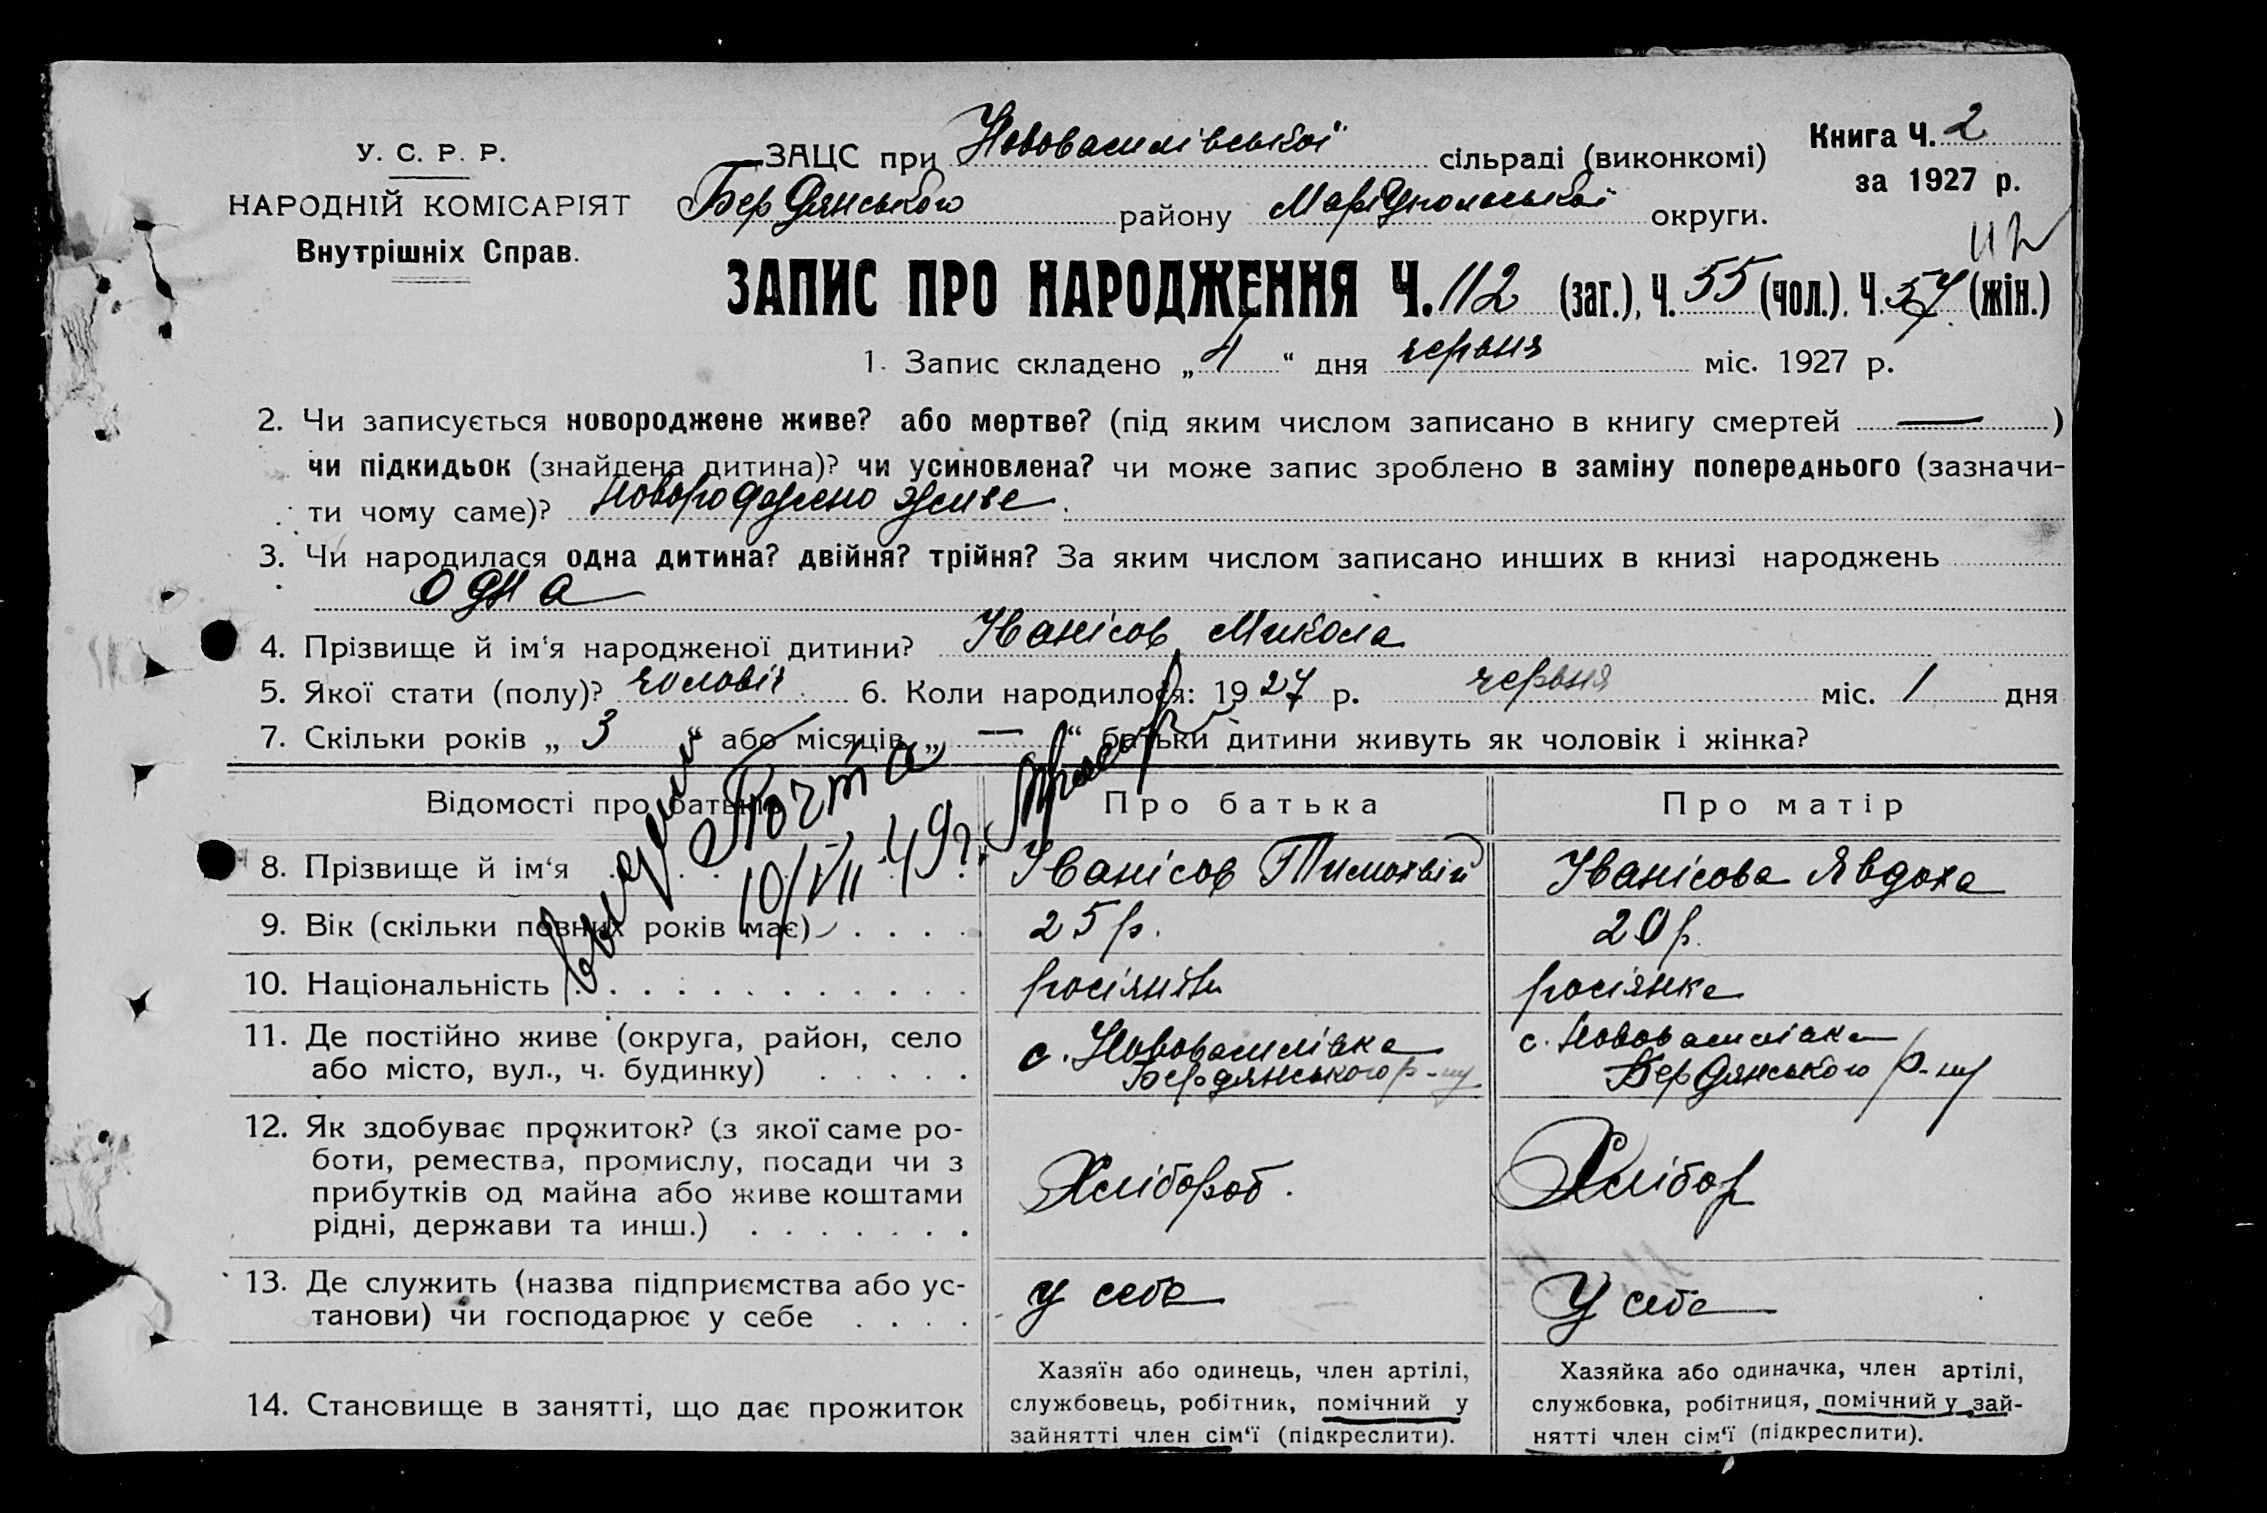 У. С. Р. Р.
НАРОДНІЙ КОМІСАРІЯТ
Внутрішніх Справ.
ЗАЦС при Нововасилівської сільраді (виконкомі)
Бердянського району Маріупольської округи.
Книга Ч. 2
за 1927 р.
112
ЗАПИС ПРО НАРОДЖЕННЯ Ч. 112 (заг.), Ч. 55 (чол.). Ч. 57 (жін.)
1. Запис складено „ 4 “ дня червня міс. 1927 р.
2. Чи записується новороджене живе? або мертве? (під яким числом записано в книгу смертей — )
чи підкидьок (знайдена дитина)? чи усиновлена? чи може запис зроблено в заміну попереднього (зазначи-
ти чому саме)? новороджено живе.
3. Чи народилася одна дитина? двійня? трійня? За яким числом записано инших в книзі народжень
одна
4. Прізвище й ім‘я народженої дитини? Іванісов Микола
5. Якої стати (полу)? чоловіч. 6. Коли народилося: 1927 р. червня міс. 1 дня
7. Скільки років „ 3 “ або місяців „ — “ батьки дитини живуть як чоловік і жінка?
Відомості про батьків Про батька Про матір
Почта
10/VII 49г.
8. Прізвище й ім‘я . . . Іванісов Тимохвій Іванісова Явдоха
9. Вік (скільки повних років має) . . . . 25 р. 20 р.
10. Національність . . . . . . . . . . . . росіянин росіянка
11. Де постійно живе (округа, район, село с. Нововасилівка с. Нововасилівка
або місто, вул., ч. будинку) . . . . . Бердянського р-ну Бердянського р-ну
12. Як здобуває прожиток? (з якої саме ро-
боти, ремества, промислу, посади чи з
прибутків од майна або живе коштами Хлібороб. Хлібор
рідні, держави та инш.) . . . . . . .
13. Де служить (назва підприємства або ус- у себе У себе
танови) чи господарює у себе . . . .
14. Становище в занятті, що дає прожиток
Хазяїн або одинець, член артілі,
службовець, робітник, помічний у
зайнятті член сім‘ї (підкреслити).
Хазяйка або одиначка, член артілі,
службовка, робітниця, помічний у зай-
нятті член сім‘ї (підкреслити).